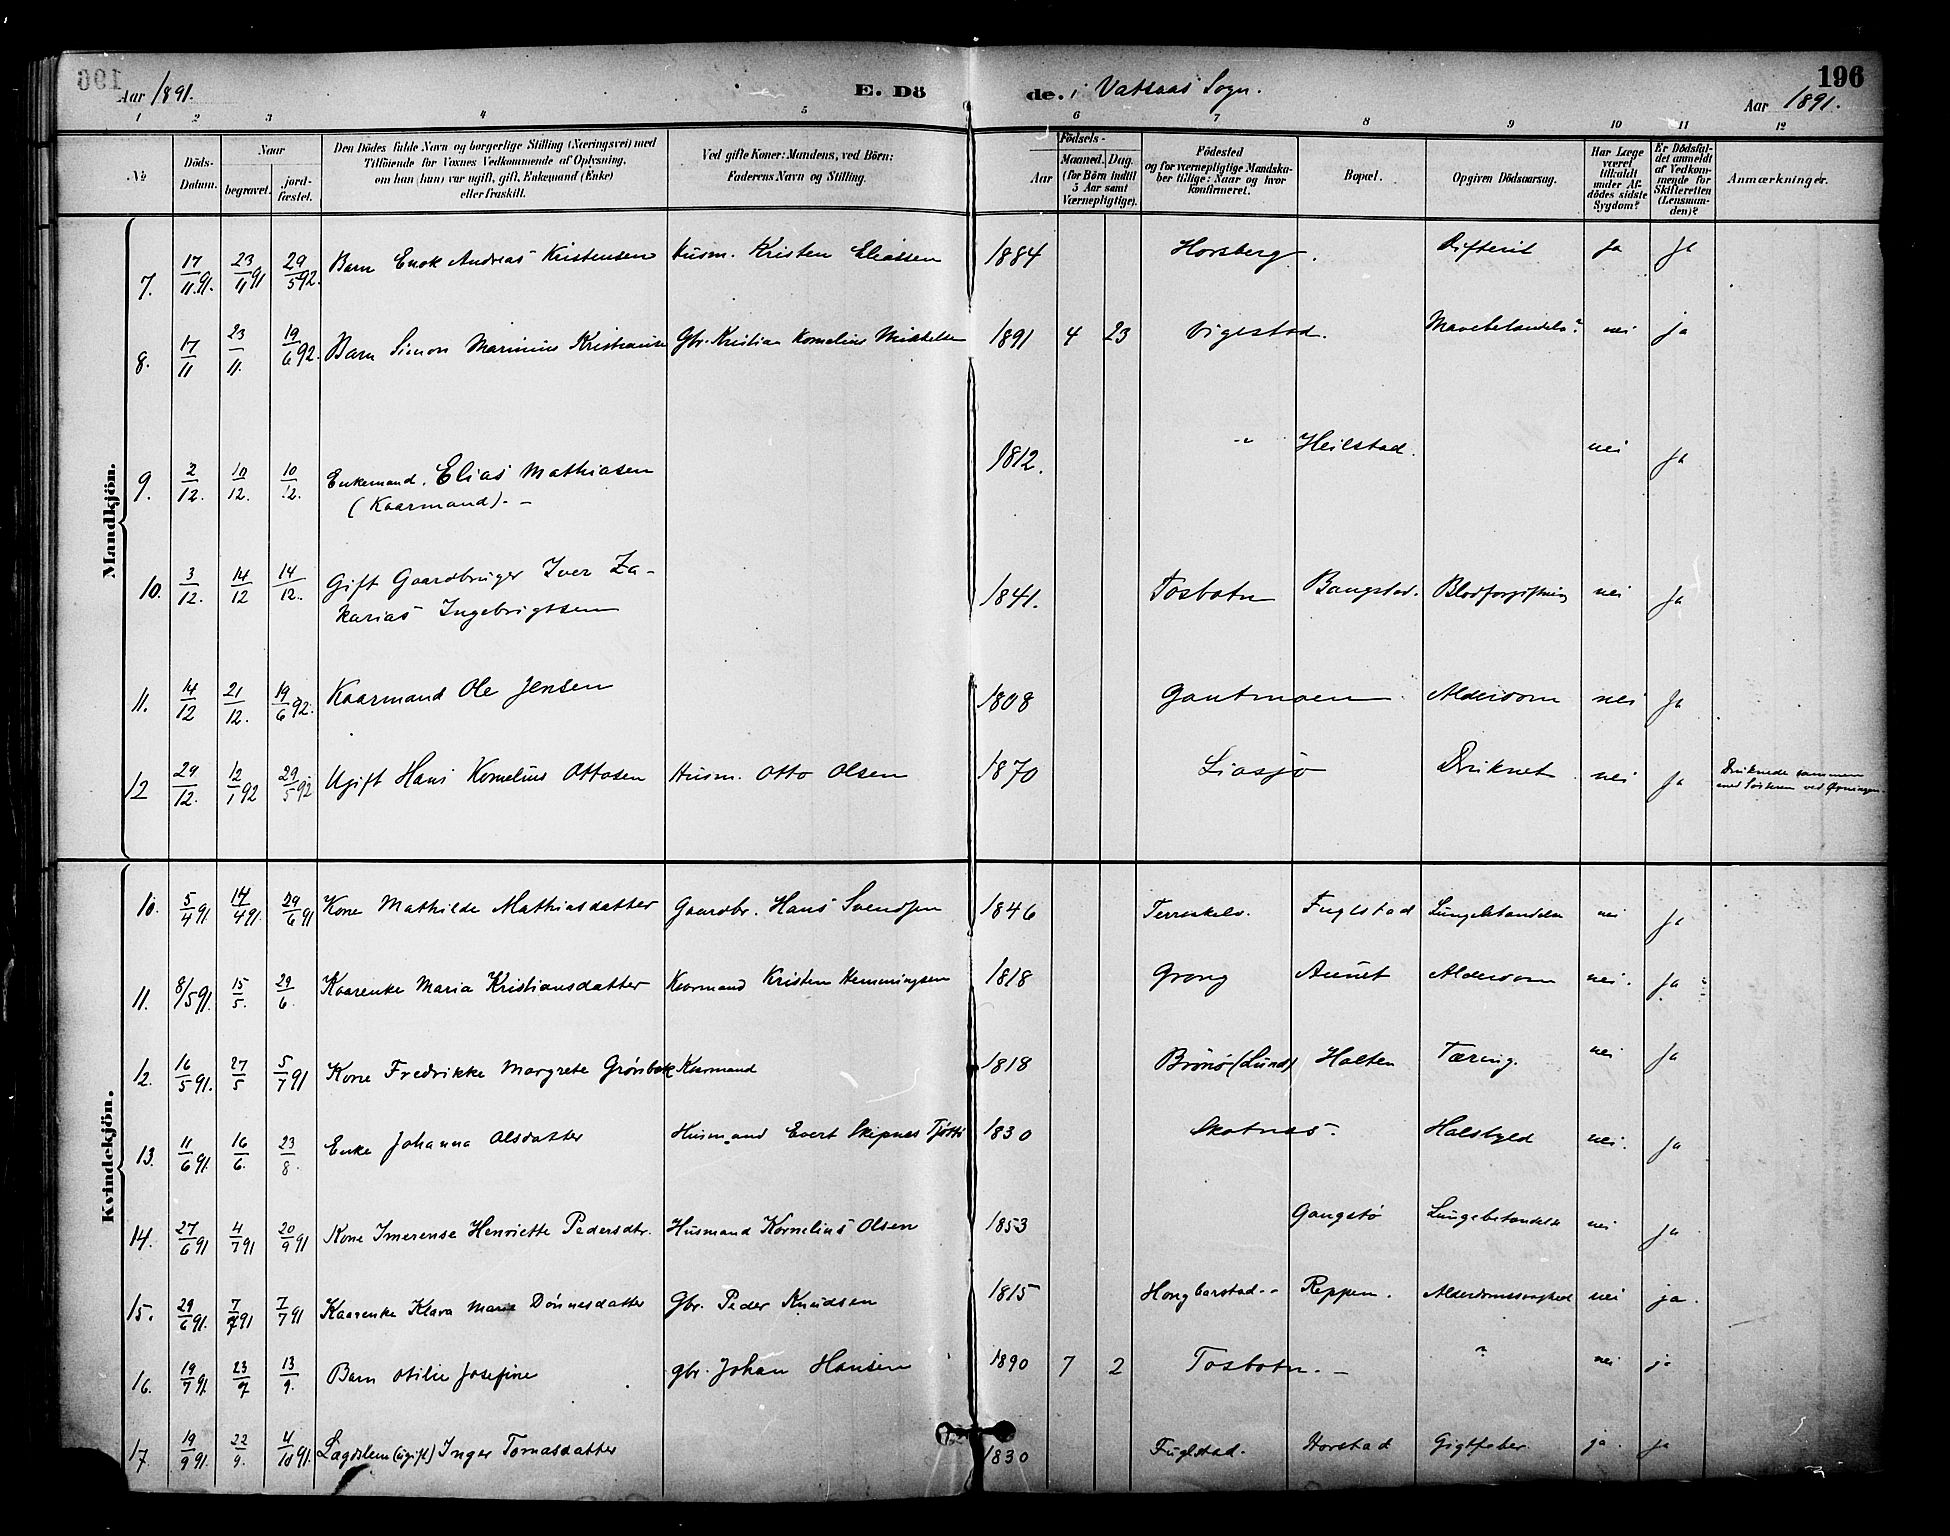 196
Aar 1891.
E. Döde. i Vatsaas Sogn.
Aar 1891.
196
1 2 3 4 5 6 7 8 9 10 11 12
No
Döds-Datum.
Naar
begravet.
jord-fæstet.
Den Dödes fulde Navn og borgerlige Stilling (Næringsvei) med
Tilföiende for Voxnes Vedkommende af Oplysning,
om han (hun) var ugift, gift, Enkemand (Enke)
eller fraskilt.
Ved gifte Koner: Mandens, ved Börn:
Faderens Navn og Stilling.
Födsels-
Aar
Maaned. Dag.
(for Börn indtil
5 Aar samt
Værnepligtige).
Födested
og for værnepligtige Mandska-
ber tillige: Naar og hvor
konfirmeret.
Bopæl.
Opgiven Dödsaarsag.
Har Læge
været
tilkaldt
under Af-
dödes sidste
Sygdom?
Er Dödsfal-
det anmeldt
af Vedkom-
mende for
Skifteretten
(Lensman-
den)?
Anmærkninger.
Mandkjön.
7. 17/11.91. 23/11 91 29/5 92. Barn Enok Andreas Kristensen Husm. Kristen Eliassen 1884 Horsberg. Difterit Ja Ja
8. 17/11 23/11. 19/6 92. Barn Simon Marinius Kristianse Gbr. Kristian Kornelius Mikkelsen 1891 4 23 Vigestad. Mavebetændels? nei ja
9. 2/12. 10/12. 10/12. Enkemand. Elias Mathiasen 1812. " Heilstad. nei Ja
(Kaarmand). -
10. 3/12. 14/12 14/12. Gift Gaardbruger Iver Za- 1841. Tosbotn Bangstad. Blodforgiftning nei Ja
karias Ingebrigtsen
11. 14/12 21/12. 19/6 92. Kaarmand Ole Jensen 1808 Gautmoen. Alderdom nei Ja
12 29/12. 12/1 92 29/5 92 Ugift Hans Kornelius Ottosen Husm. Otto Olsen 1870 Liasjø Druknet nei Ja Druknede sammen
med Søsteren ved
Kvindekjön.
10. 5/4 91 14/4 91. 29/6 91 Kone Mathilde Mathiasdatter Gaardbr. Hans Svendsen 1846 Fuglstad Lungebetændelse nei Ja
11. 8/5 91. 15/5. 29/6. Kaarenke Maria Kristiansdatter Kaarmand Kristen Hemmingsen 1818 Grong Aunet Alderdom nei. Ja
12. 16/5 91. 27/5 5/7 91 Kone Fredrikke Margrete Grønbek Kaarmand 1818 Brønø (Lund) Holten Tæring. nei Ja
13. 11/6 91. 16/6. 23/8. Enke Johanna Olsdatter Husmand Evert Skipnes Tjøtta 1830 Skotnes. Halsbyld nei. Ja
14. 27/6 91 4/7 91 20/9 91 Kone Imerense Henriette Pedersdtr. Husmand Kornelius Olsen 1853 Gangstø Lungebetændelse nei Ja
15. 29/6 91. 7/7 91 7/7 91 Kaarenke Klara Maria Dønnesdatter Gbr. Peder Knudsen 1815 Hongbarstad Reppen. Alderdomssvaghed nei ja.
16. 19/7 91 23/7 13/9. Barn Otilie Josefine gbr. Johan Hansen 1890 7 2 Tosbotn. - ? nei ja
17. 19/9 91. 22/9. 4/10 91. Lægdslem (ugift) Inger Tomasdatter 1830 Fuglstad. Horstad Gigtfeber ja. ja